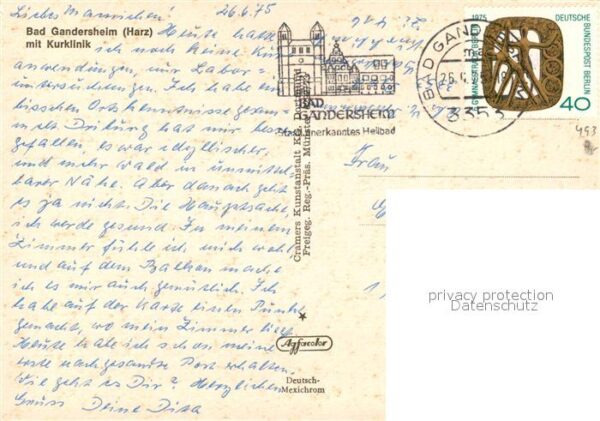 Liebes Mamichen! 26.6.75
Bad Gandersheim (Harz)
mit Kurklinik
Heute hatte
ich noch keine Kur-
anwendungen, nur Labor-
untersuchungen. Ich habe ein
bisschen Ortskenntnisse gesam-
melt. Driburg hat mir besser
gefallen, es war idyllischer,
und mehr Wald in unmittel-
barer Nähe. Aber danach geht
es ja nicht. Die Hauptsache,
ich werde gesund. In meinem
Zimmer fühle ich mich wohl,
und auf dem Balkon mache
ich es mir auch gemütlich. Ich
habe auf der Karte einen Punkt
gemacht, wo mein Zimmer liegt.
Heute habe ich schon meine
erste nachgesandte Post erhalten.
Wie geht es Dir? Herzlichen
Gruss Deine Dita
Cramers Kunstanstalt KG
Freigeg. Reg.-Präs. Münster
Agfacolor
Deutsch-
Mexichrom
BAD
GANDERSHEIM
anerkanntes Heilbad
BAD GAND
3353
1975
DEUTSCHE
BUNDESPOST BERLIN
40
493
Frau
privacy protection
Datenschutz